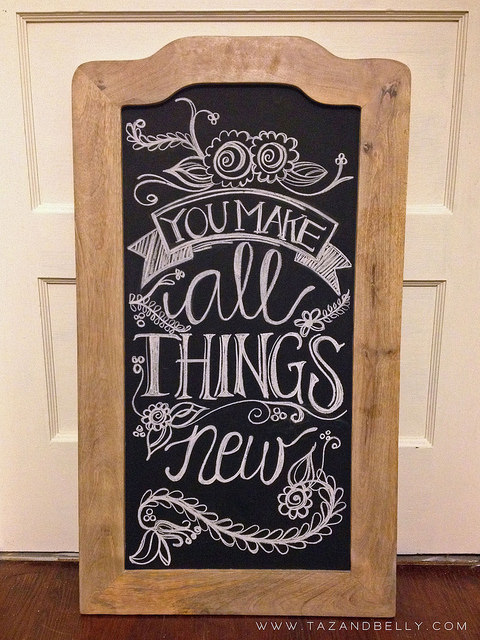 YOU MAKE
all
THINGS
new
WWW.TAZANDBELLY.COM